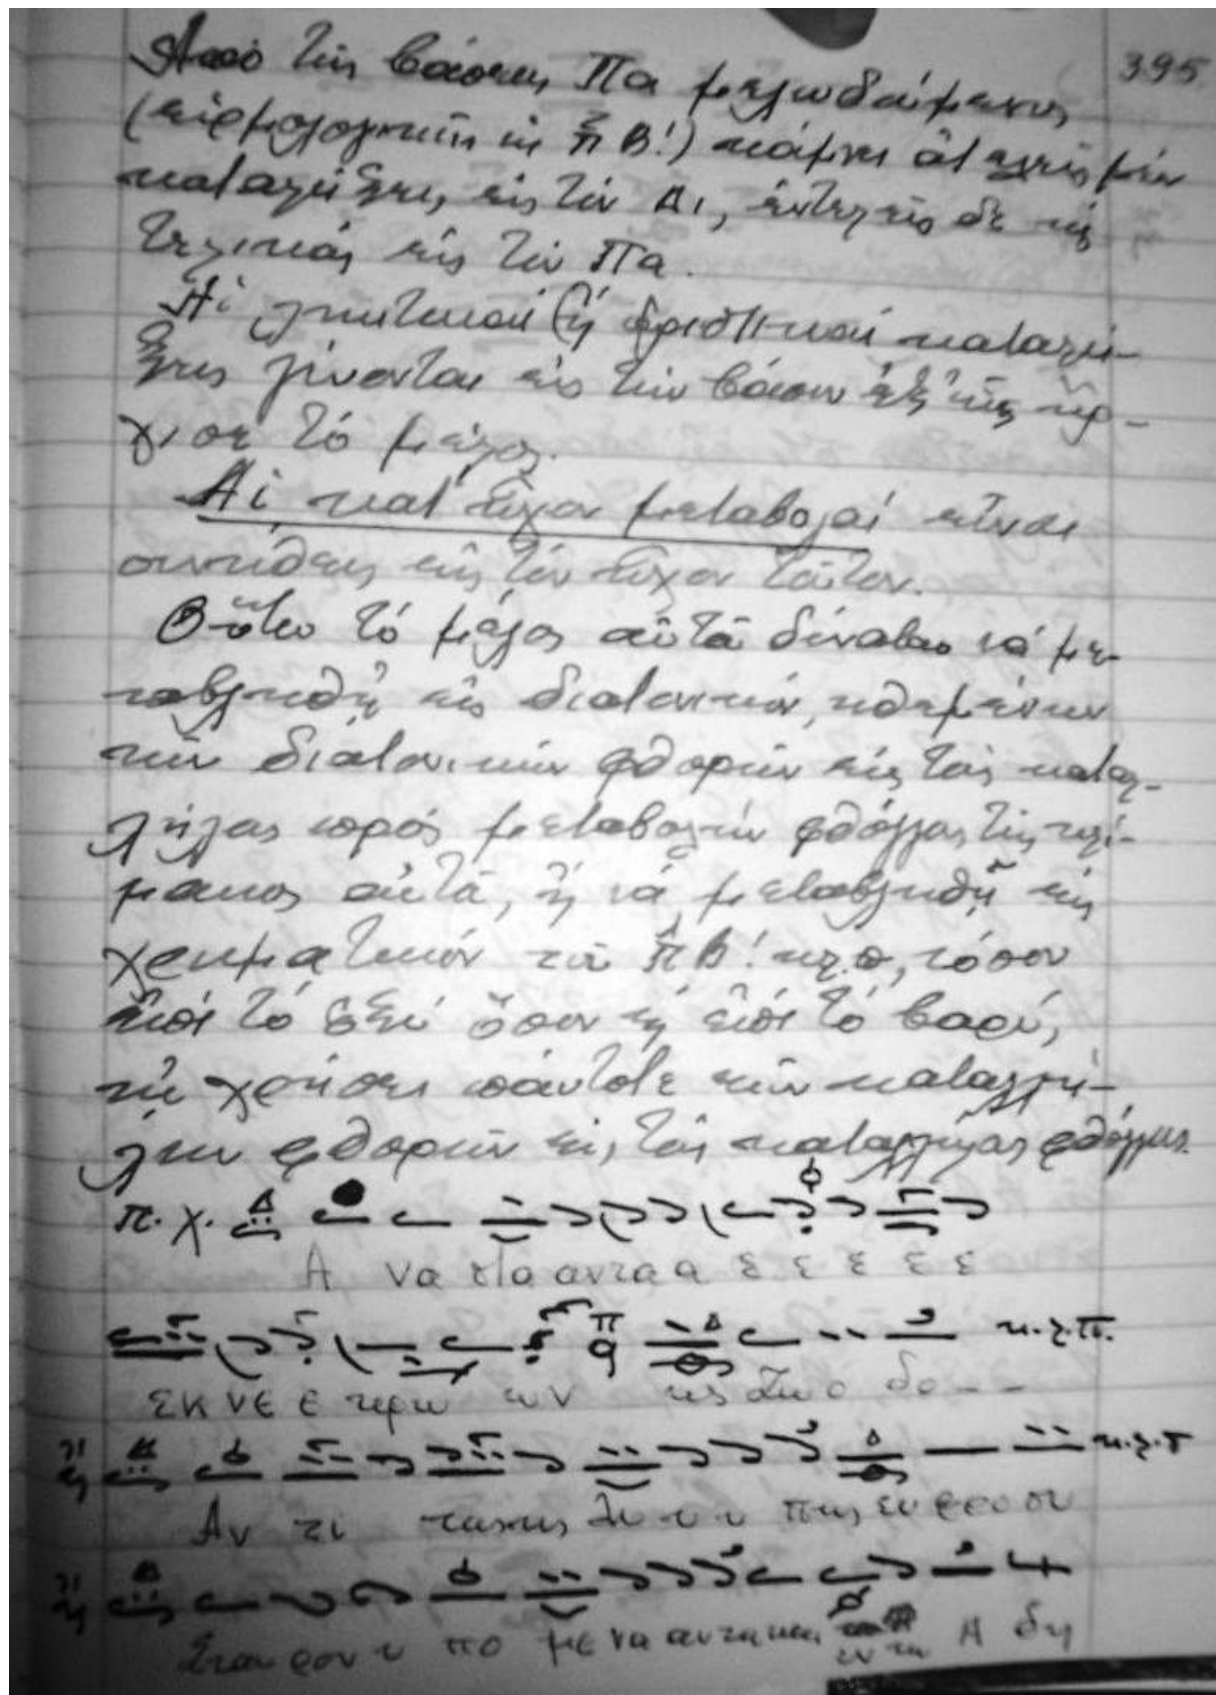 395
Ἀπό τῆς βάσεως Πα μελωδούμενος
(εἱρμολογικῶς ὡς π Β!) κάμνει ἀτελεῖς μέν
καταλήξεις εἰς τόν Δι, ἐντελεῖς δέ καί
τελικάς εἰς τόν Πα.
Αἱ ληκτικαί (ἤ ὁριστικαί καταλή-
ξεις γίνονται εἰς τήν βάσιν ἐξ ἧς ἤρ-
χισε τό μέλος.
Αἱ κατ' ἦχον μεταβολαί εἶναι
συνήθεις εἰς τόν ἦχον τοῦτον.
Οὕτω τό μέλος αὐτοῦ δύναται νά με-
ταβληθῇ εἰς διατονικόν, τιθεμένων
τῶν διατονικῶν φθορῶν εἰς τούς καταλ-
λήλους πρός μεταβολήν φθόγγους τῆς κλί-
μακος αὐτοῦ, ἤ νά μεταβληθῇ εἰς
χρωματικόν τοῦ π Β! κλπ, τόσον
ἐπί τό ὀξύ ὅσον καί ἐπί τό βαρύ,
τῇ χρήσει πάντοτε τῶν καταλλή-
λων φθορῶν εἰς τούς καταλλήλους φθόγγους.
π.χ. Δ
Α να στα αντα α ε ε ε ε ε
κ.λ.π.
εκ νε ε κρω ων
Αν τι λυ υ υ πης ευ φρο συ
Σταυρου υ πο με να αντικαι Α δη